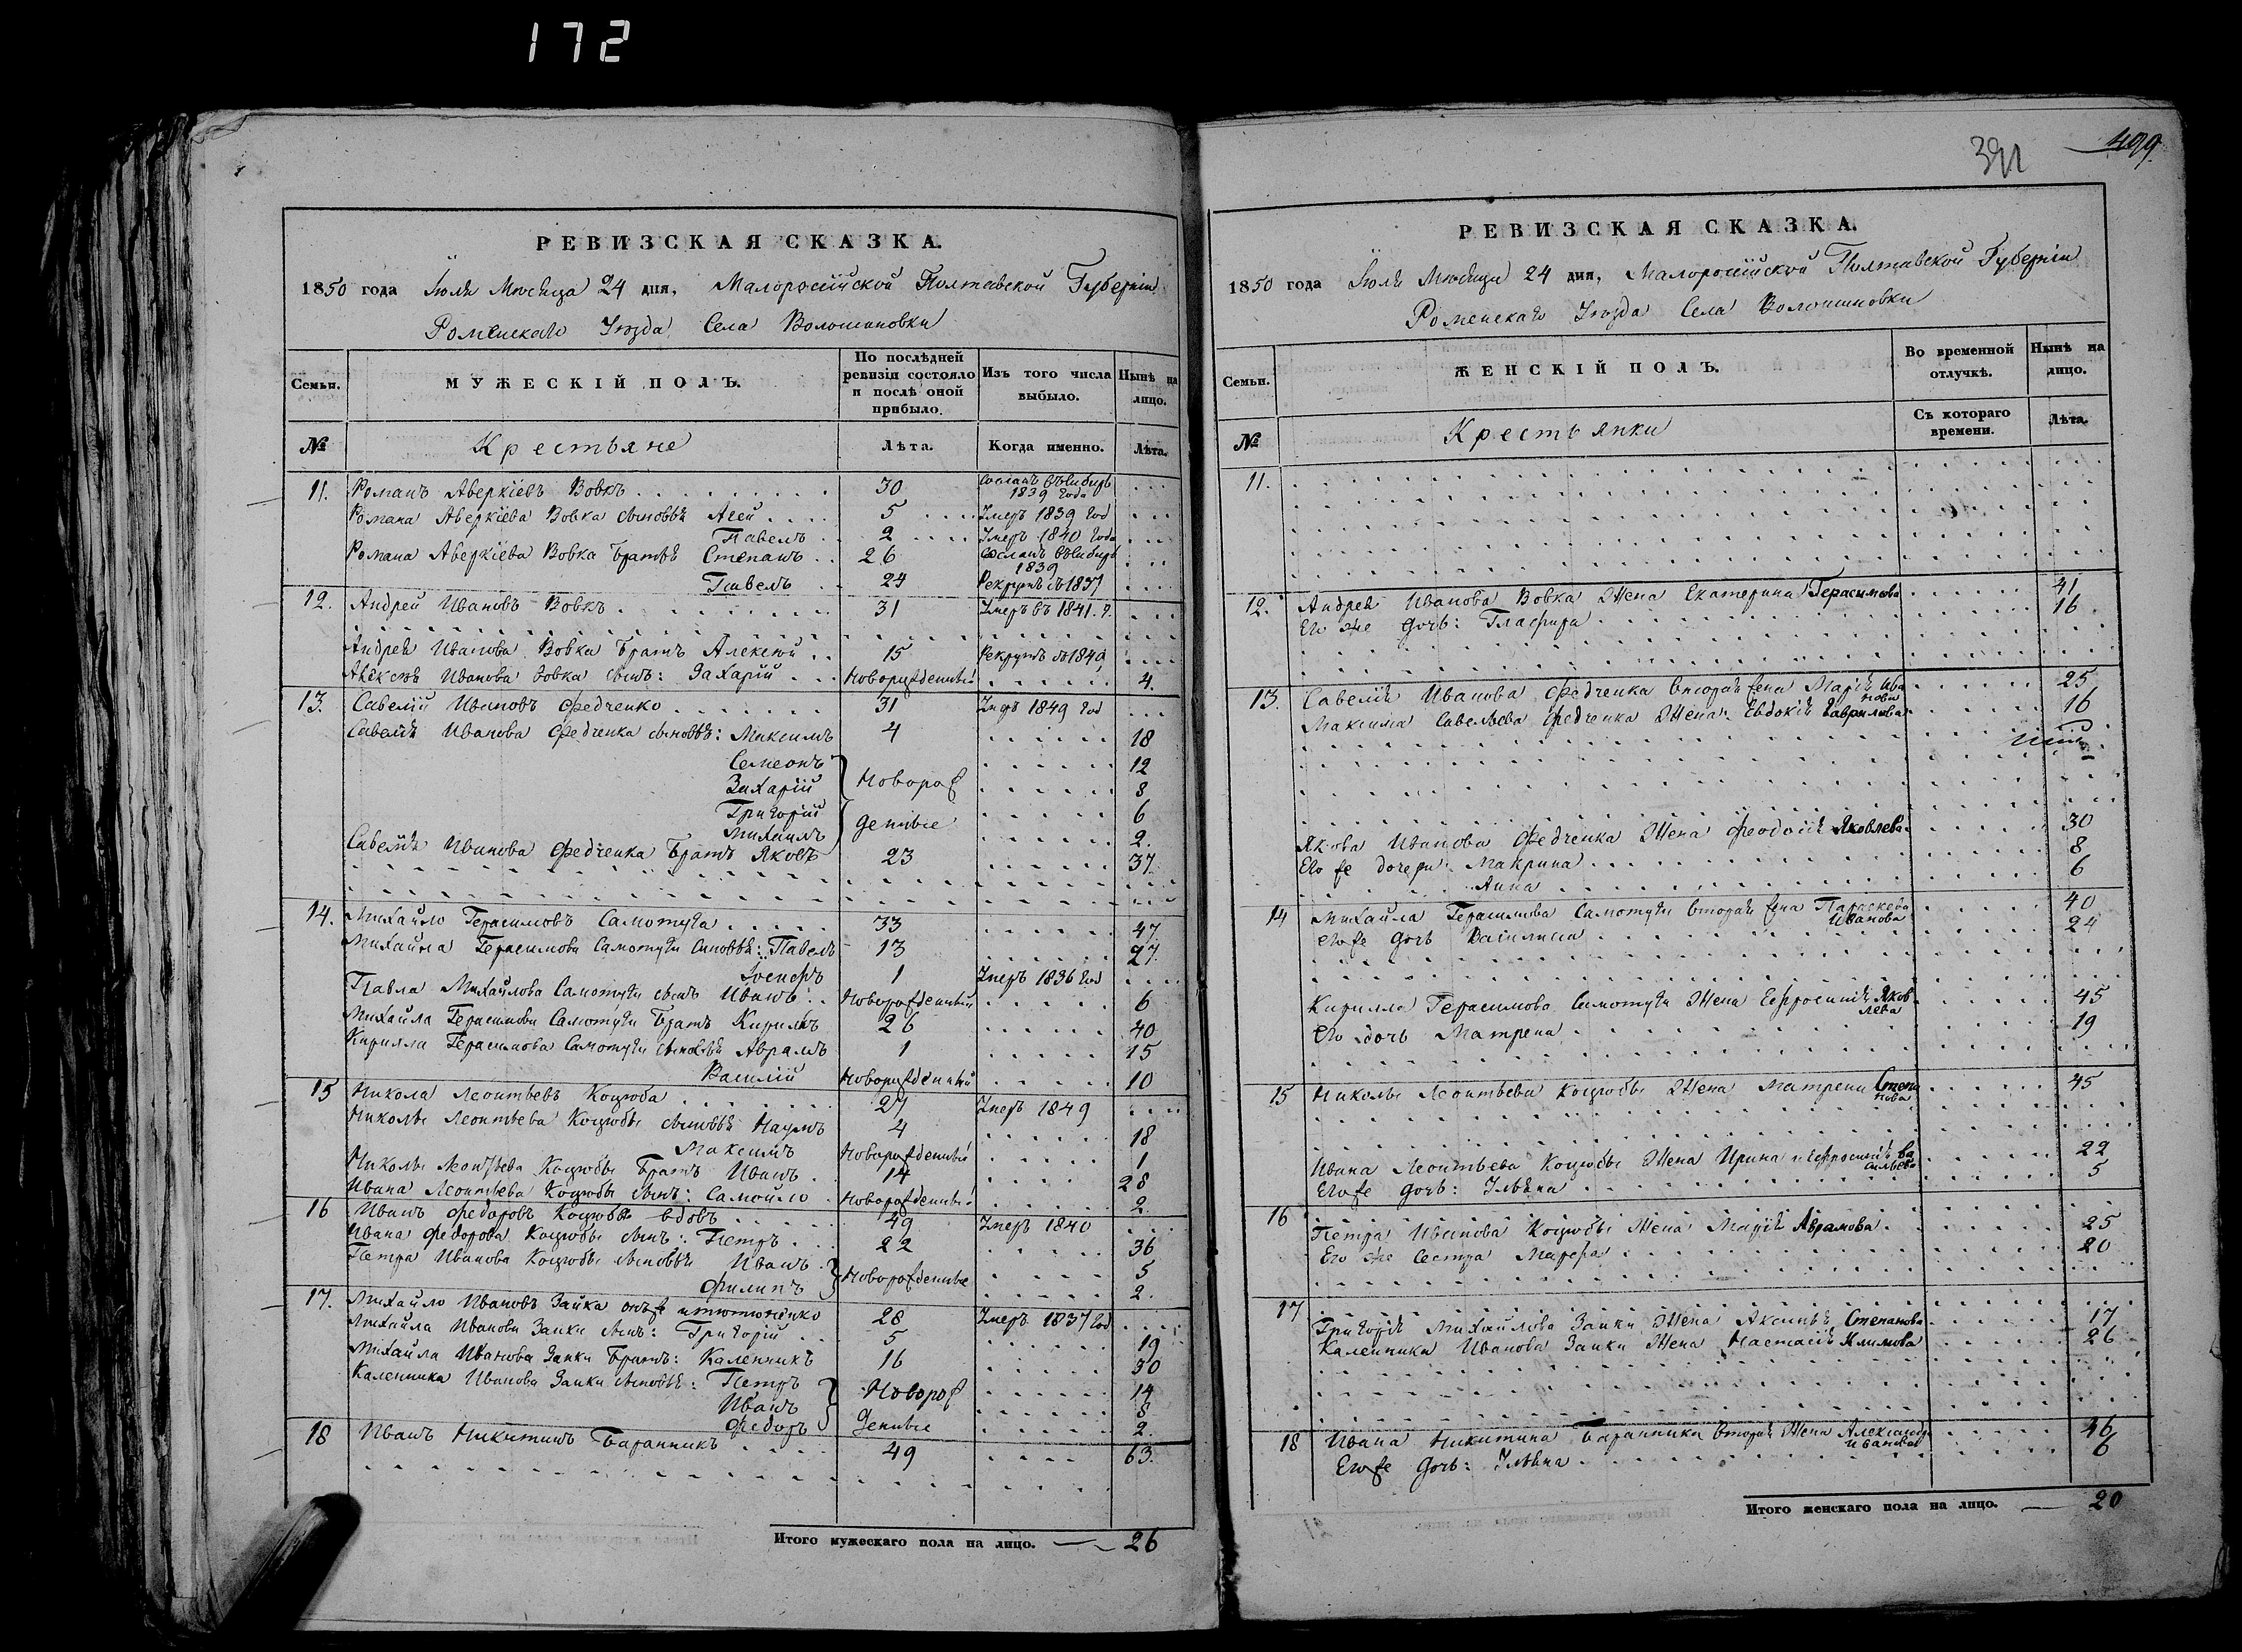 172
РЕВИЗСКАЯ СКАЗКА.
1850 года Іюля Мѣсяца 24 дня, Малоросійской Полтавской Губерніи
Роменскаго Уѣзда Села Волошиновки
Семьи.
МУЖЕСКІЙ ПОЛЪ.
По послѣдней ревизіи состояло и послѣ оной прибыло.
Изъ того числа выбыло.
Нынѣ на лицо.
№
Крестьяне
Лѣта.
Когда именно.
Лѣта.
11. Романъ Аверкіевъ Вовкъ 30 Сосланъ въ Сибирь 1839 года
Романа Аверкіева Вовка сыновья Агей 5 Умеръ 1839 год
Павелъ 2 Умеръ 1840 года
Романа Аверкіева Вовка братья Степанъ 26 Сосланъ въ Сибирь 1839
Павелъ 24 Рекрутъ съ 1837
12. Андрей Ивановъ Вовкъ 31 Умеръ въ 1841. г.
Андрея Иванова Вовка братъ Алексѣй 15 Рекрутъ съ 1849
Алексѣя Иванова Вовка сынъ: Захарій Новорожденный 4.
13. Савелій Ивановъ Федченко 31 Умеръ 1849 год
Савелія Иванова Федченка сыновья: Максимъ 4 18
Семеонъ 12
Захарій Новорож 8
Григорій 6
Михаилъ денные 2.
Савелія Иванова Федченка братъ Яковъ 23 37.
14. Михайло Герасимовъ Самотуга 33 47
Михайла Герасимова Самотуги сыновья: Павелъ 13 27.
Іосифъ 1 Умеръ 1836 год
Павла Михайлова Самотуги сынъ Иванъ Новорожденный 6
Михайла Герасимова Самотуги братъ Кирилъ 26 40
Кирилла Герасимова Самотуги сыновья Аврамъ 1 15
Василій Новорожденный 10
15 Никола Леонтьевъ Коцюба 27 Умеръ 1849
Николы Леонтьева Коцюбы сыновья Наумъ 4 18
Максимъ Новорожденный 1
Николы Леонтьева Коцюбы братъ Иванъ 14 28
Ивана Леонтьева Коцюбы сынъ: Самойло Новорожденный 2
16 Иванъ Федоровъ Коцюба вдовъ 49 Умеръ 1840
Ивана Федорова Коцюбы сынъ: Петръ 22 36
Петра Иванова Коцюбы сыновья Иванъ Новорожденные 5
Филипъ 2.
17. Михайло Ивановъ Заика онъ ж 28 Умеръ 1837 год
Михайла Иванова Заики сынъ: Григорій 5 19
Михайла Иванова Заики братъ: Каленникъ 16 30
Каленника Иванова Заики сыновья: Петръ 14
Иванъ Новорож 8
Федоръ денные 2.
18 Иванъ Никитинъ Баранникъ 49 63.
Итого мужескаго пола на лицо. 26
391
499
РЕВИЗСКАЯ СКАЗКА.
1850 года Іюля Мѣсяца 24 дня, Малоросійской Полтавской Губерніи
Роменскаго Уѣзда Села Волошиновки
Семьи.
ЖЕНСКІЙ ПОЛЪ.
Во временной отлучкѣ.
Нынѣ на лицо.
№
Крестьянки
Съ котораго времени.
Лѣта.
11.
12. Андрея Иванова Вовка Жена Екатерина Герасимова 41
Его же дочь: Глафира 16
13. Савелія Иванова Федченка вторая жена Марія Иванова 25
Максима Савельева Федченка Жена Евдокія Гаврилова 16
Якова Иванова Федченка Жена Феодосія Яковлева 30
Его же дочери Макрина 8
Анна 6
14 Михайла Герасимова Самотуги вторая жена Параскева Иванова 40
его же дочь Василиса 24
Кирилла Герасимова Самотуги Жена Ефросинія Яковлева 45
Его дочь Матрена 19
15 Николы Леонтьева Коцюбы Жена Матрена Степанова 45
Ивана Леонтьева Коцюбы Жена Ирина и Ефросинія Васильева 22
Его же дочь: Ульяна 5
16
Петра Иванова Коцюбы Жена Марія Аврамова 25
Его же Сестра Марфа 20
17
Григорія Михайлова Заики Жена Аксинья Степанова 17
Каленника Иванова Заики Жена Настасія Климова 26
18 Ивана Никитина Баранника вторая Жена Александра Иванова 46
Его же дочь: Ульяна 6
Итого женскаго пола на лицо. 20